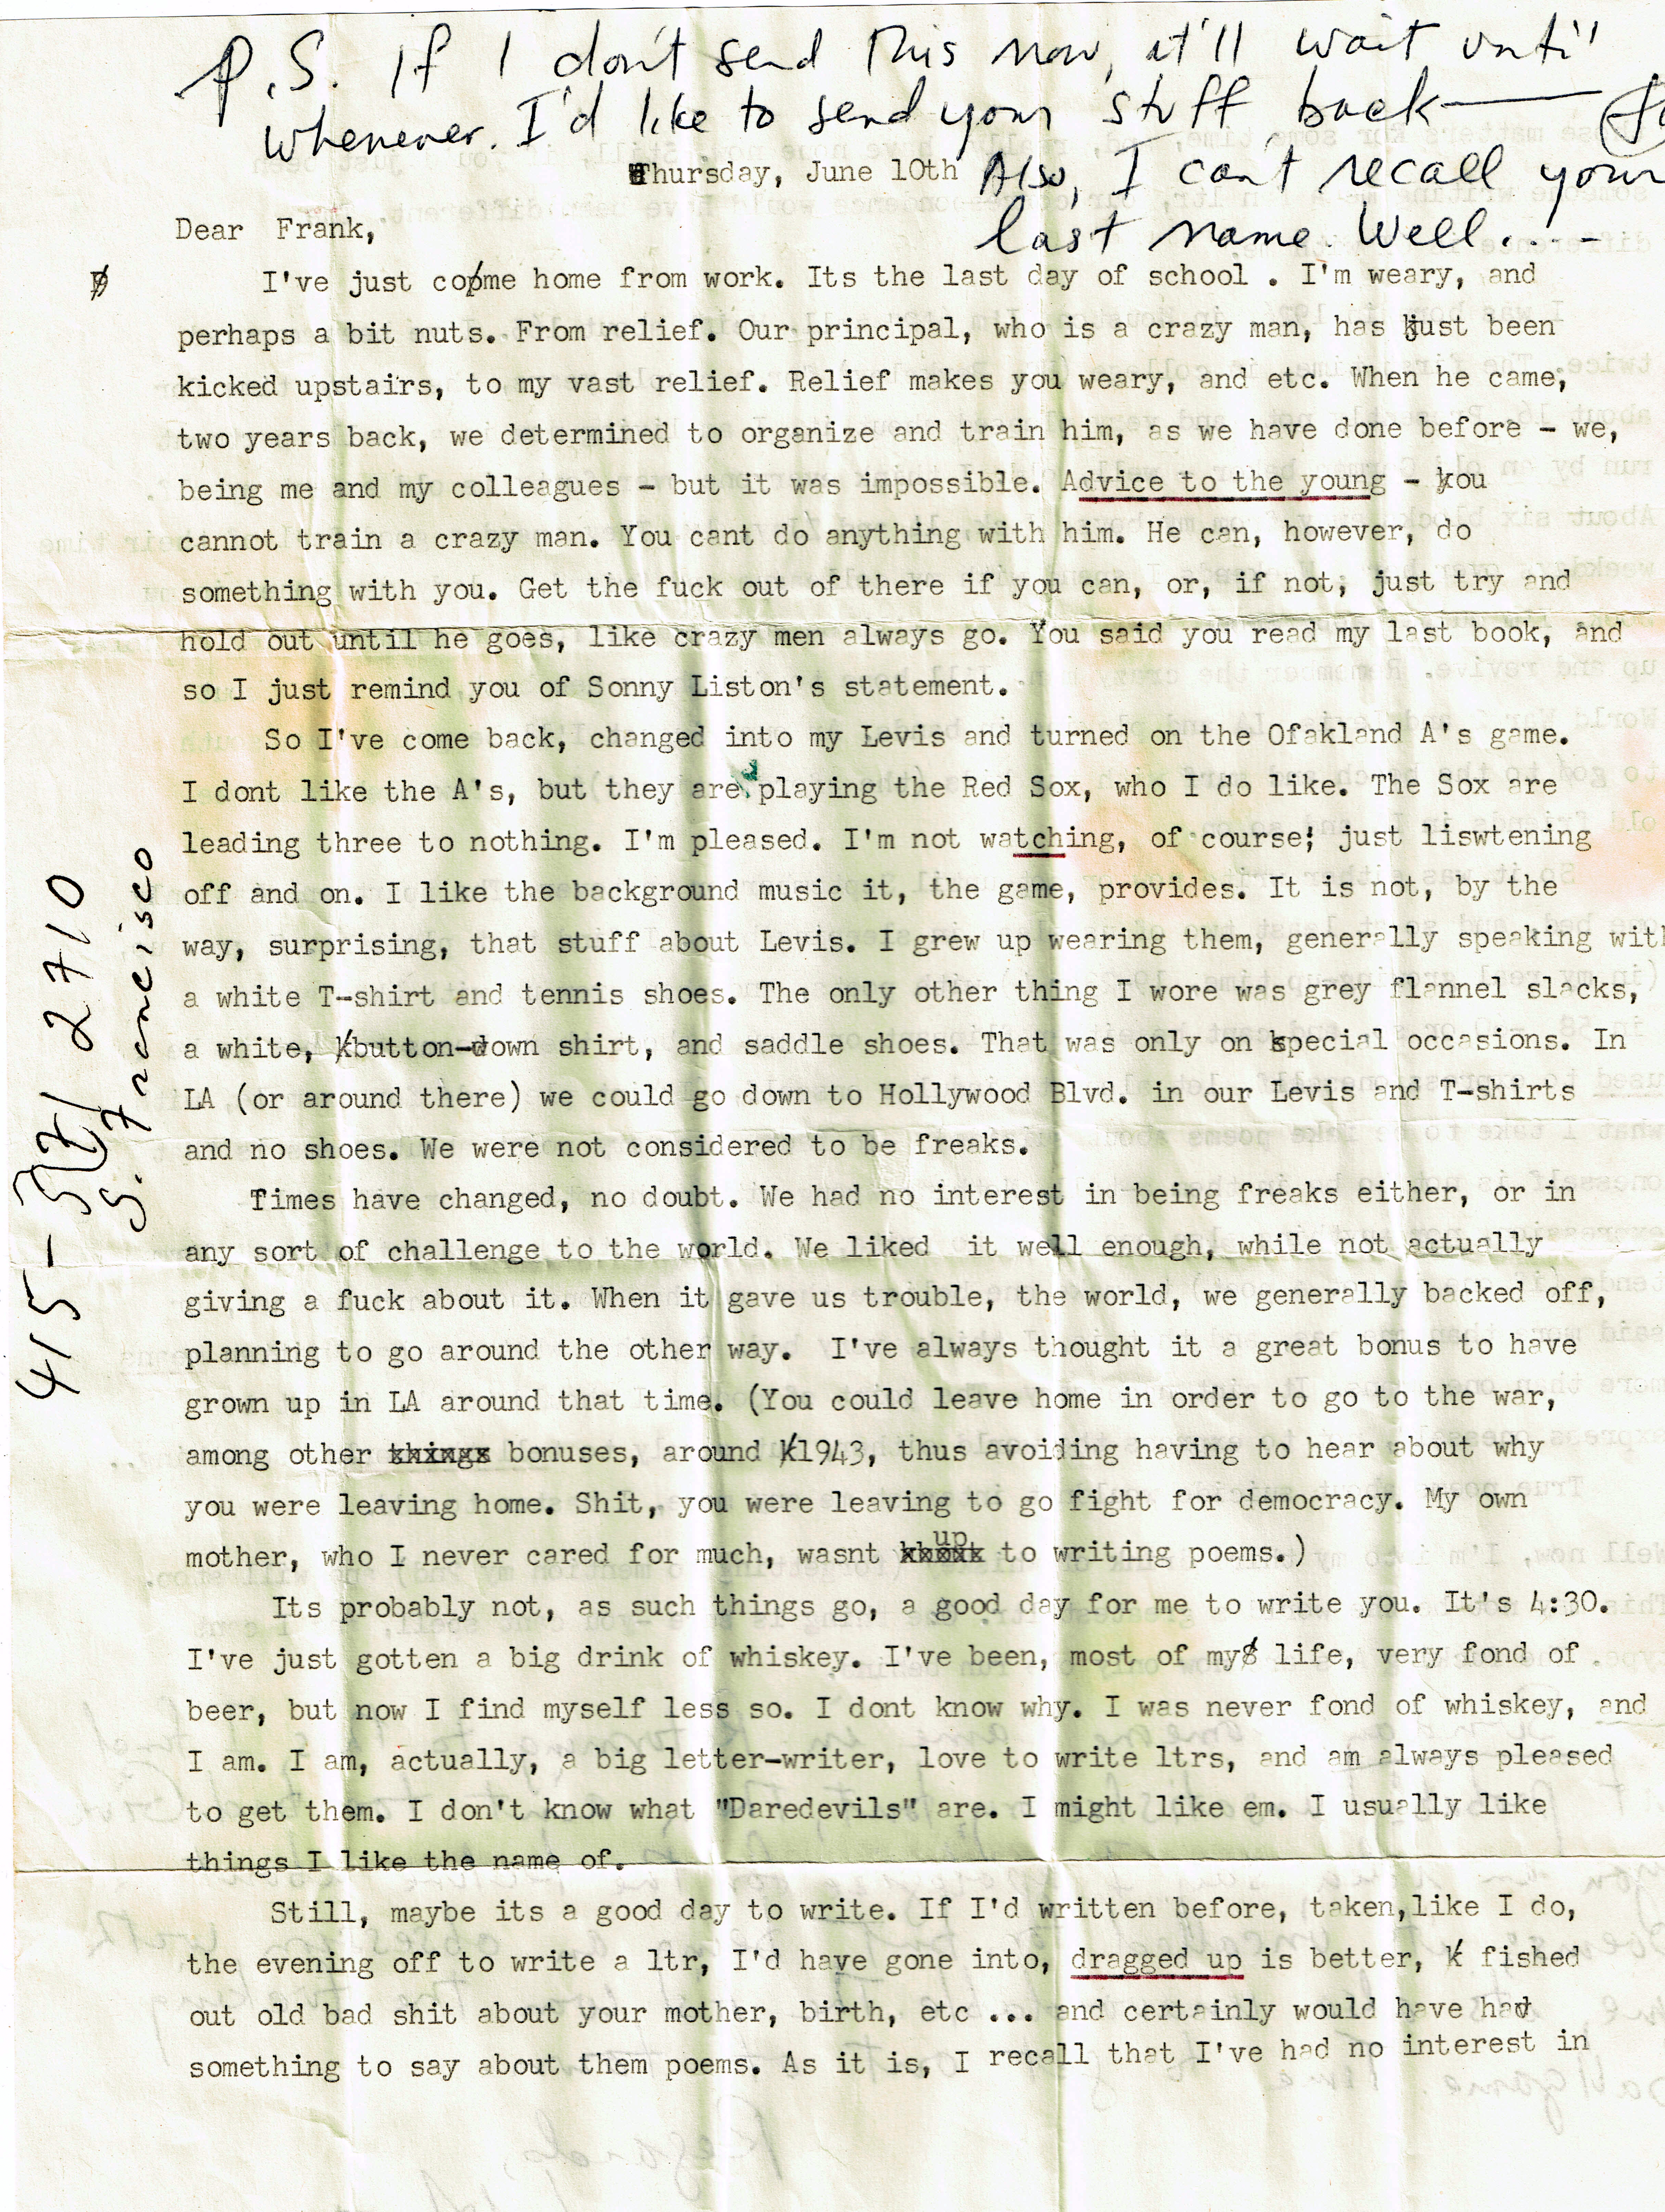 P.S. If I don't send this now, it'll wait until
whenever. I'd like to send your stuff back—
Also, I can't recall your
last name. Well....-
Thursday, June 10th
Dear Frank,
I've just come home from work. Its the last day of school . I'm weary, and
perhaps a bit nuts. From relief. Our principal, who is a crazy man, has just been
kicked upstairs, to my vast relief. Relief makes you weary, and etc. When he came,
two years back, we determined to organize and train him, as we have done before - we,
being me and my colleagues - but it was impossible. Advice to the young - you
cannot train a crazy man. You cant do anything with him. He can, however, do
something with you. Get the fuck out of there if you can, or, if not, just try and
hold out until he goes, like crazy men always go. You said you read my last book, and
so I just remind you of Sonny Liston's statement.
So I've come back, changed into my Levis and turned on the Ofakland A's game.
I dont like the A's, but they are playing the Red Sox, who I do like. The Sox are
leading three to nothing. I'm pleased. I'm not watching, of course; just liswtening
off and on. I like the background music it, the game, provides. It is not, by the
way, surprising, that stuff about Levis. I grew up wearing them, generally speaking with
a white T-shirt and tennis shoes. The only other thing I wore was grey flannel slacks,
a white, button-down shirt, and saddle shoes. That was only on special occasions. In
LA (or around there) we could go down to Hollywood Blvd. in our Levis and T-shirts
and no shoes. We were not considered to be freaks.
Times have changed, no doubt. We had no interest in being freaks either, or in
any sort of challenge to the world. We liked it well enough, while not actually
giving a fuck about it. When it gave us trouble, the world, we generally backed off,
planning to go around the other way. I've always thought it a great bonus to have
grown up in LA around that time. (You could leave home in order to go to the war,
among other things bonuses, around 1943, thus avoiding having to hear about why
you were leaving home. Shit, you were leaving to go fight for democracy. My own
mother, who I never cared for much, wasnt up to writing poems.)
Its probably not, as such things go, a good day for me to write you. It's 4:30.
I've just gotten a big drink of whiskey. I've been, most of my life, very fond of
beer, but now I find myself less so. I dont know why. I was never fond of whiskey, and
I am. I am, actually, a big letter-writer, love to write ltrs, and am always pleased
to get them. I don't know what "Daredevils" are. I might like em. I usually like
things I like the name of.
Still, maybe its a good day to write. If I'd written before, taken,like I do,
the evening off to write a ltr, I'd have gone into, dragged up is better, fished
out old bad shit about your mother, birth, etc ... and certainly would have had
something to say about them poems. As it is, I recall that I've had no interest in
S. Francisco